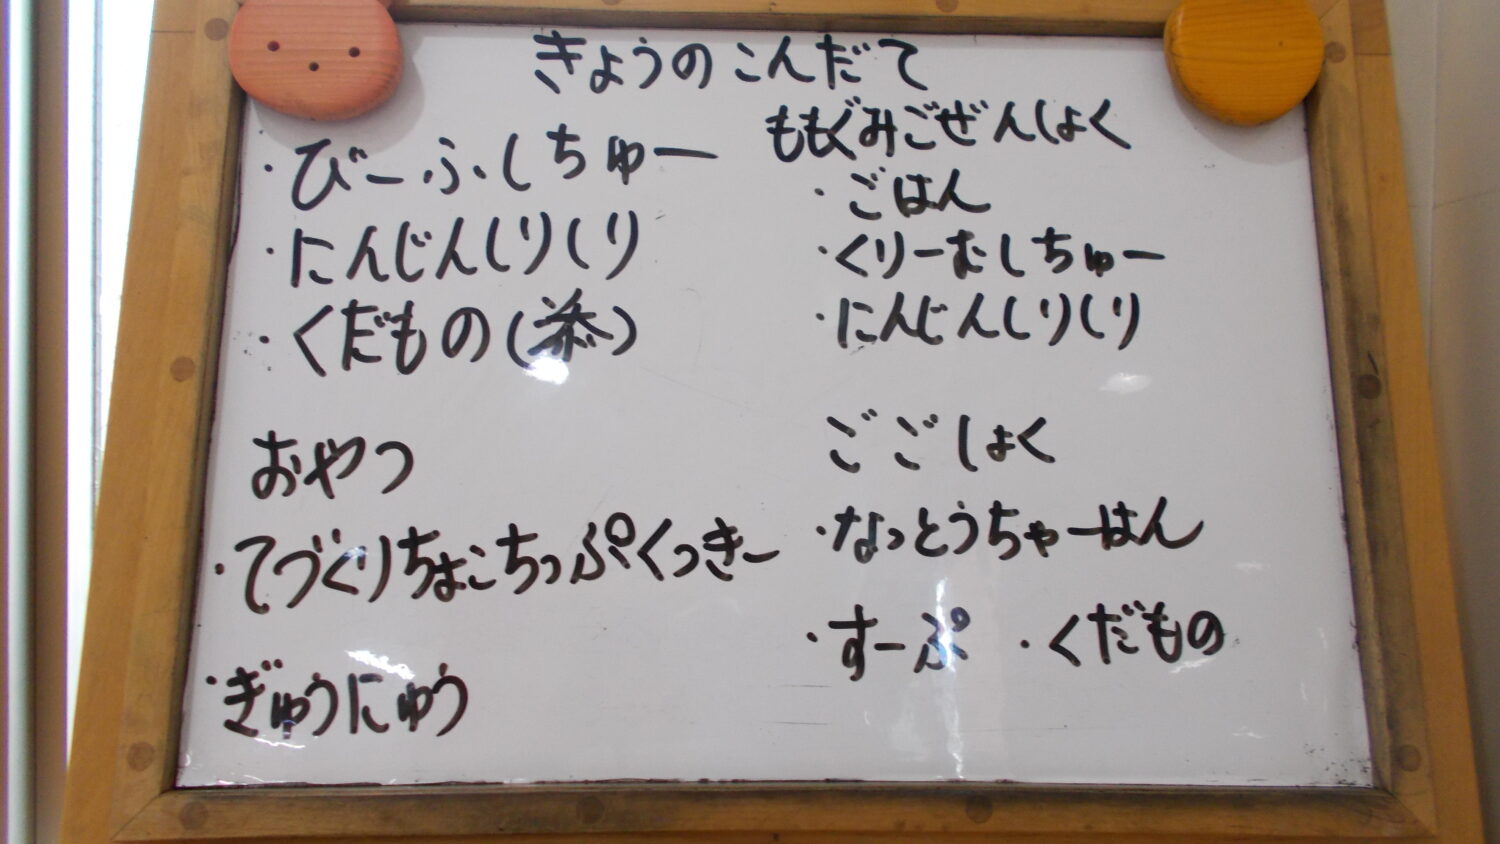 きょうのこんだて
・びーふしちゅー
・にんじんしりしり
・くだもの( )
おやつ
・てづくりちょこちっぷくっきー
・ぎゅうにゅう
ももぐみごぜんしょく
・ごはん
・くりーむしちゅー
・にんじんしりしり
ごごしょく
・なっとうちゃーはん
・すーぷ ・くだもの